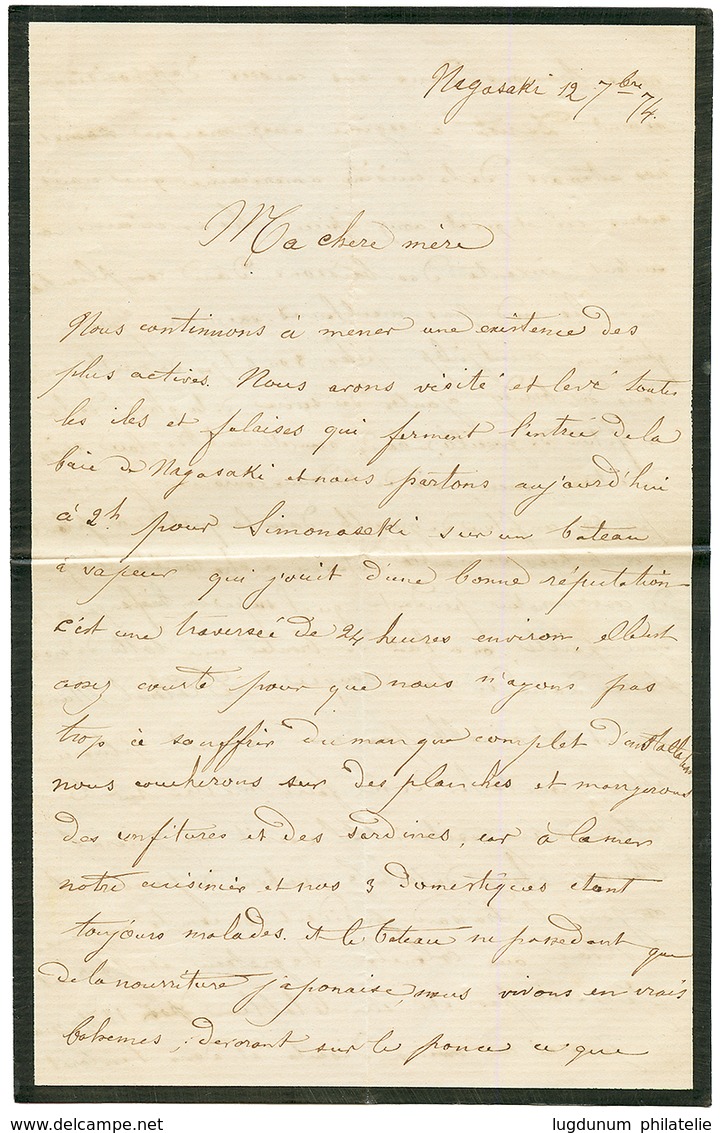 Nagasaki 12 7bre 74.
Ma chere mère
Nous continuons à mener une existence des
plus actives. Nous avons visité et levé toutes
les iles et falaises qui ferment l'entrée de la
baie de Nagasaki et nous partons aujourd'hui
à 2h pour Simonoseki sur un bateau
à vapeur qui jouit d'une bonne réputation
c'est une traversée de 24 heures environ, elle est
assez courte pour que nous n'ayons pas
trop à souffrir du manque complet d'installation
nous coucherons sur des planches et mangerons
des confitures et des sardines, car à la mer
notre cuisinier et nos 3 domestiques etant
toujours malades. et le bateau ne possedant que
de la nourriture japonaise, nous vivons en vrais
bohemes, devorant sur le pouce ce que
lugdunum philatelie